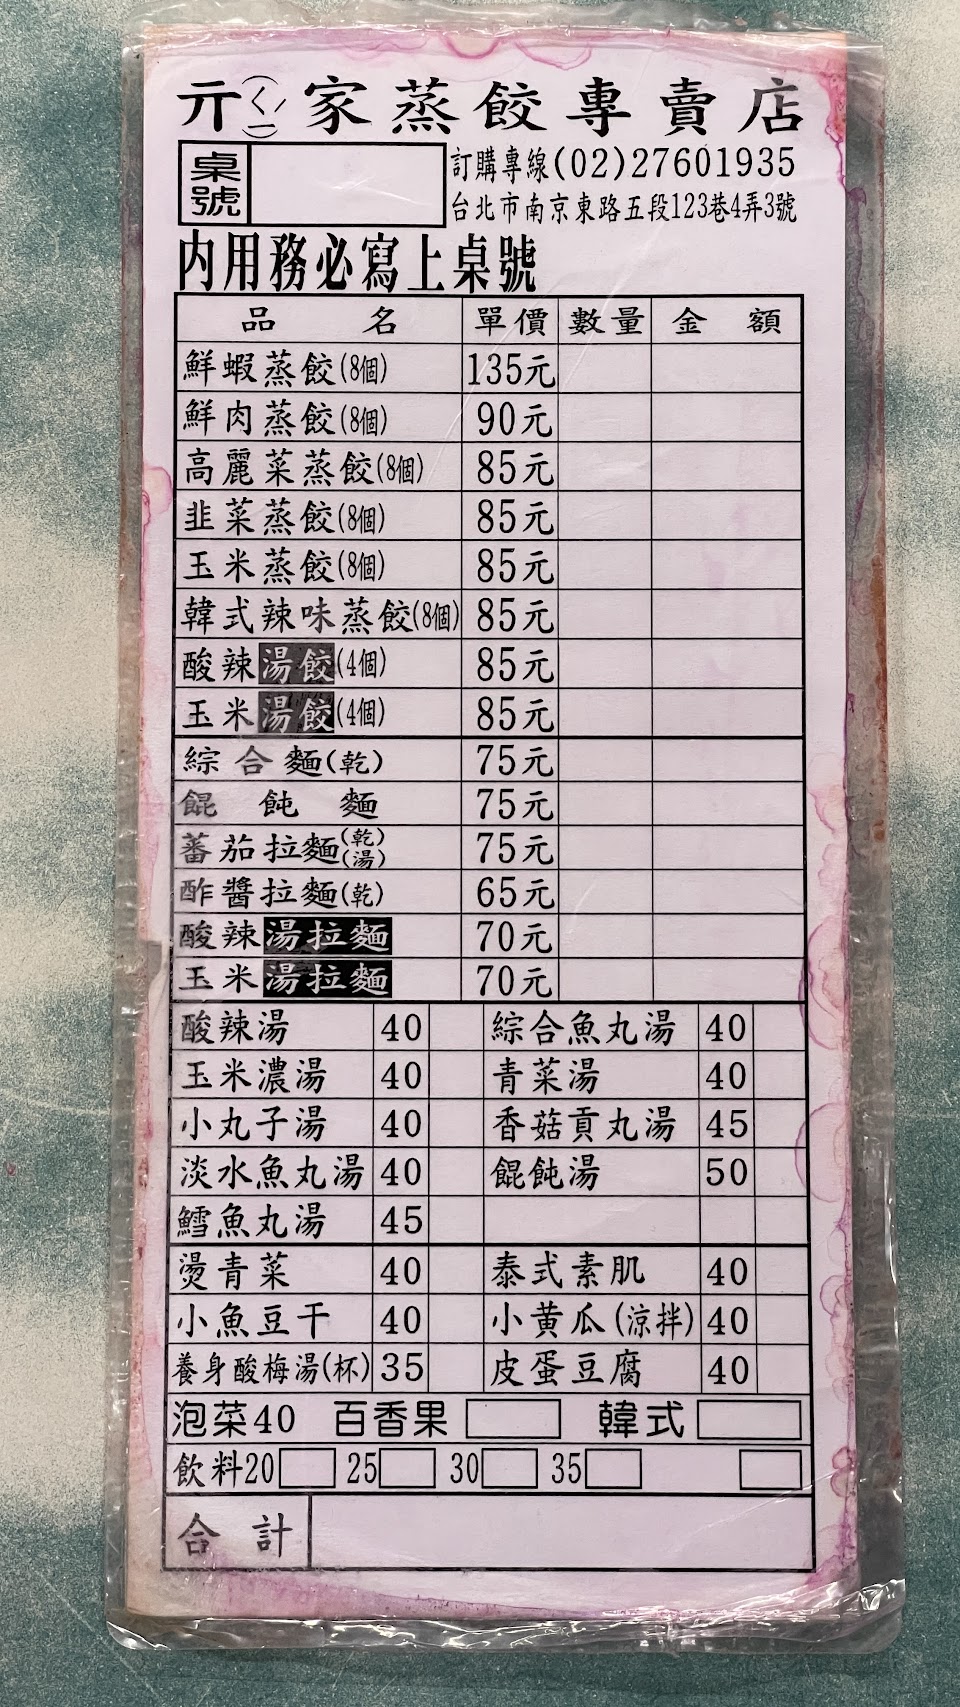 亓(ㄑㄧˊ)家蒸餃專賣店
桌號
訂購專線(02)27601935
台北市南京東路五段123巷4弄3號
內用務必寫上桌號
品名 單價 數量 金額
鮮蝦蒸餃(8個) 135元
鮮肉蒸餃(8個) 90元
高麗菜蒸餃(8個) 85元
韭菜蒸餃(8個) 85元
玉米蒸餃(8個) 85元
韓式辣味蒸餃(8個) 85元
酸辣湯餃(4個) 85元
玉米湯餃(4個) 85元
綜合麵(乾) 75元
餛飩麵 75元
蕃茄拉麵(乾)(湯) 75元
酢醬拉麵(乾) 65元
酸辣湯拉麵 70元
玉米湯拉麵 70元
酸辣湯 40 綜合魚丸湯 40
玉米濃湯 40 青菜湯 40
小丸子湯 40 香菇貢丸湯 45
淡水魚丸湯 40 餛飩湯 50
鱈魚丸湯 45
燙青菜 40 泰式素肌 40
小魚豆干 40 小黃瓜(涼拌) 40
養身酸梅湯(杯) 35 皮蛋豆腐 40
泡菜40 百香果 韓式
飲料20 25 30 35
合計